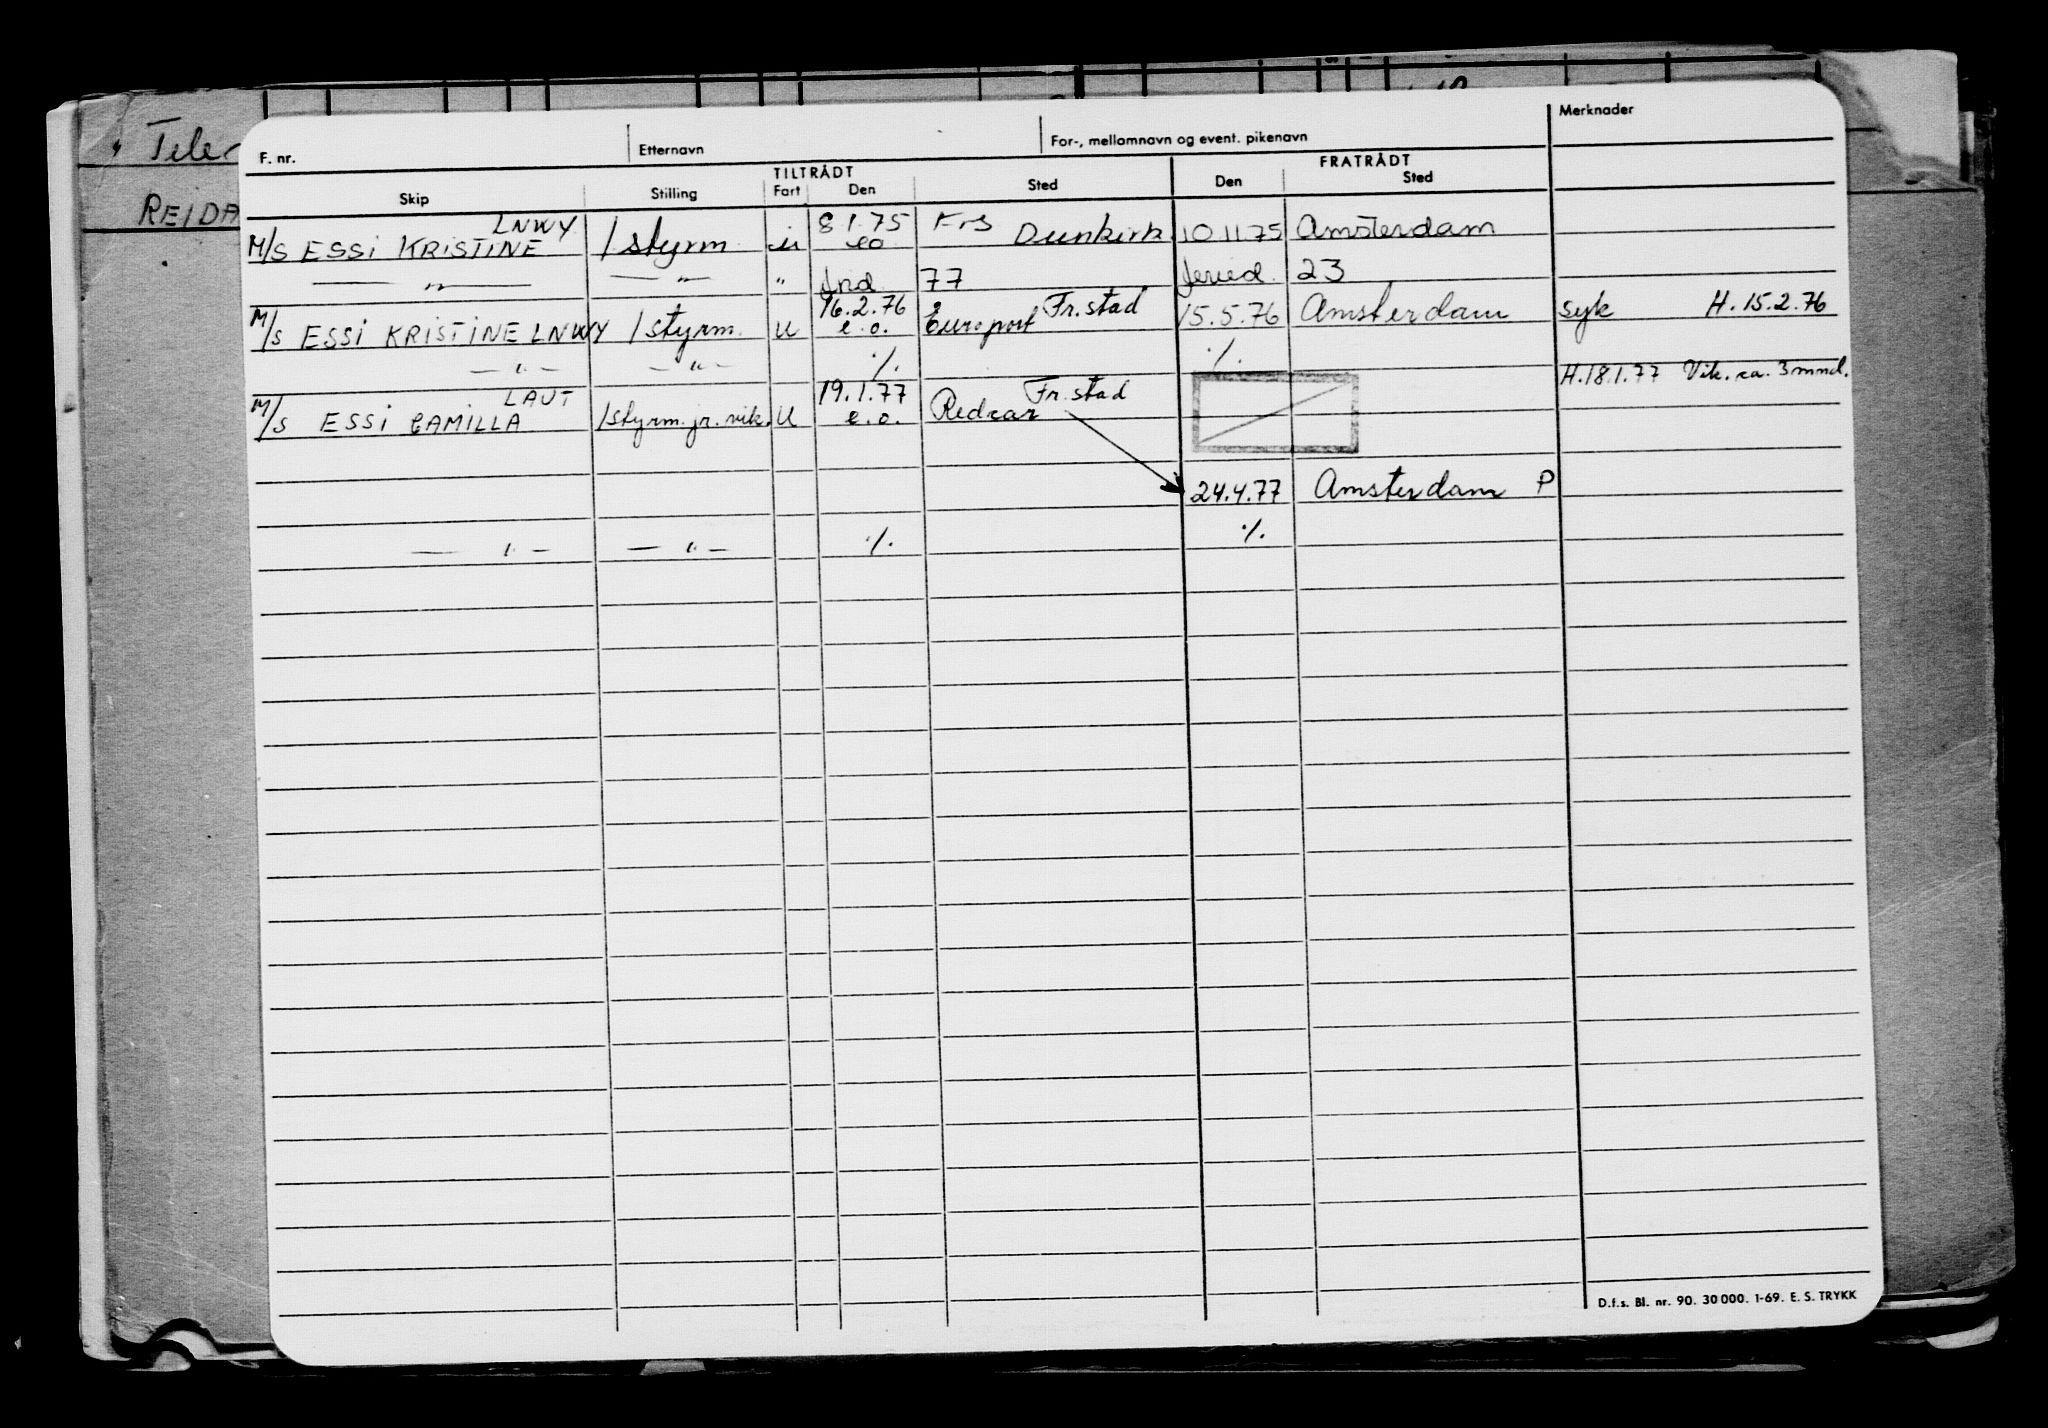 REIDA
F. nr. Etternavn For-, mellomnavn og event. pikenavn Merknader
TILTRÅDT FRATRÅDT
Skip Stilling Fart Den Sted Den Sted
LNWY 8.1.75 Frs
M/S ESSI KRISTINE 1 styrm. u eo Dunkirk 10.11.75 Amsterdam
— " — — " — " Ind. 77 23
16.2.76 Fr.stad
M/S ESSI KRISTINE LNWY 1 styrm. u e.o. Europort 15.5.76 Amsterdam Syk H. 15.2.76
— " — — " — ./. ./.
H. 18.1.77 Vik. ca. 3 mnd.
LAUT 19.1.77 Fr.stad
M/S ESSI CAMILLA 1 styrm. jr. vik. U e.o. Redcar
24.4.77 Amsterdam P
— " — — " — ./. ./.
D.f.s. Bl. nr. 90. 30 000. 1-69. E. S. TRYKK